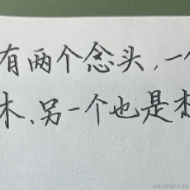 有两个念头,一
木、另一个也是